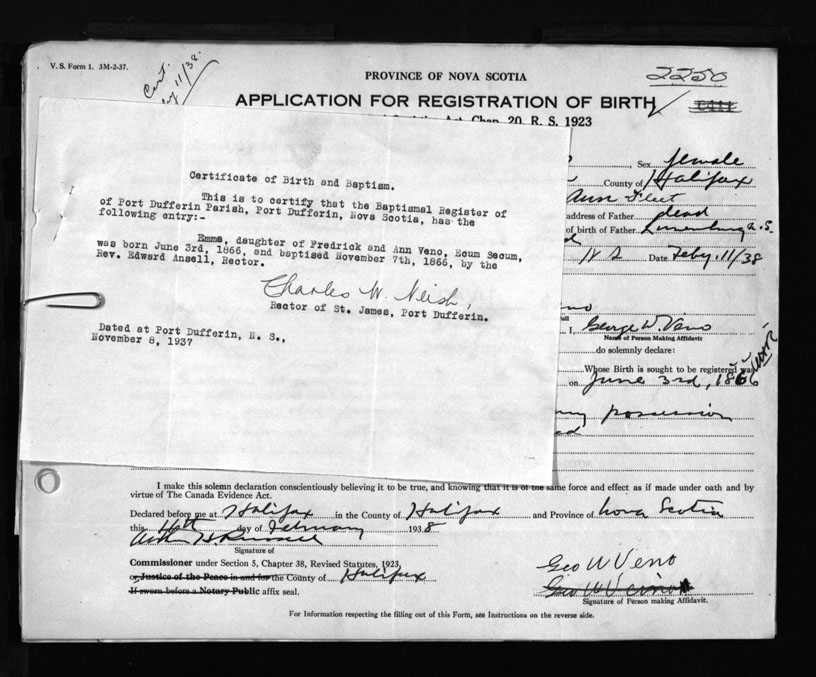 V. S. Form 1. 3M-2-37.
Cert.
11/38.
PROVINCE OF NOVA SCOTIA
2250
APPLICATION FOR REGISTRATION OF BIRTH
Act, Chap. 20, R. S. 1923
Certificate of Birth and Baptism.
This is to certify that the Baptismal Register of
of Port Dufferin Parish, Port Dufferin, Nova Scotia, has the
following entry:-
Emma, daughter of Fredrick and Ann Veno, Ecum Secum,
was born June 3rd, 1866, and baptised November 7th, 1866, by the
Rev. Edward Ansell, Rector.
Charles W. Neish,
Rector of St. James, Port Dufferin.
Dated at Port Dufferin, N. S.,
November 8, 1937
Sex female
County of Halifax
Ann Fleet
address of Father dead
of birth of Father Lunenburg N.S.
N S Date Feby. 11/38
I, George W. Veno
Name of Person Making Affidavit
do solemnly declare:
Whose Birth is sought to be registered was
on June 3rd, 1866
my possession
I make this solemn declaration conscientiously believing it to be true, and knowing that it is of the same force and effect as if made under oath and by
virtue of The Canada Evidence Act.
Declared before me at Halifax in the County of Halifax and Province of Nova Scotia
this day of February 1938
Signature of
Commissioner under Section 5, Chapter 38, Revised Statutes, 1923,
or Justice of the Peace in and for the County of Halifax
If sworn before a Notary Public affix seal.
Geo W Veno
Geo W Veno
Signature of Person making Affidavit.
For Information respecting the filling out of this Form, see Instructions on the reverse side.